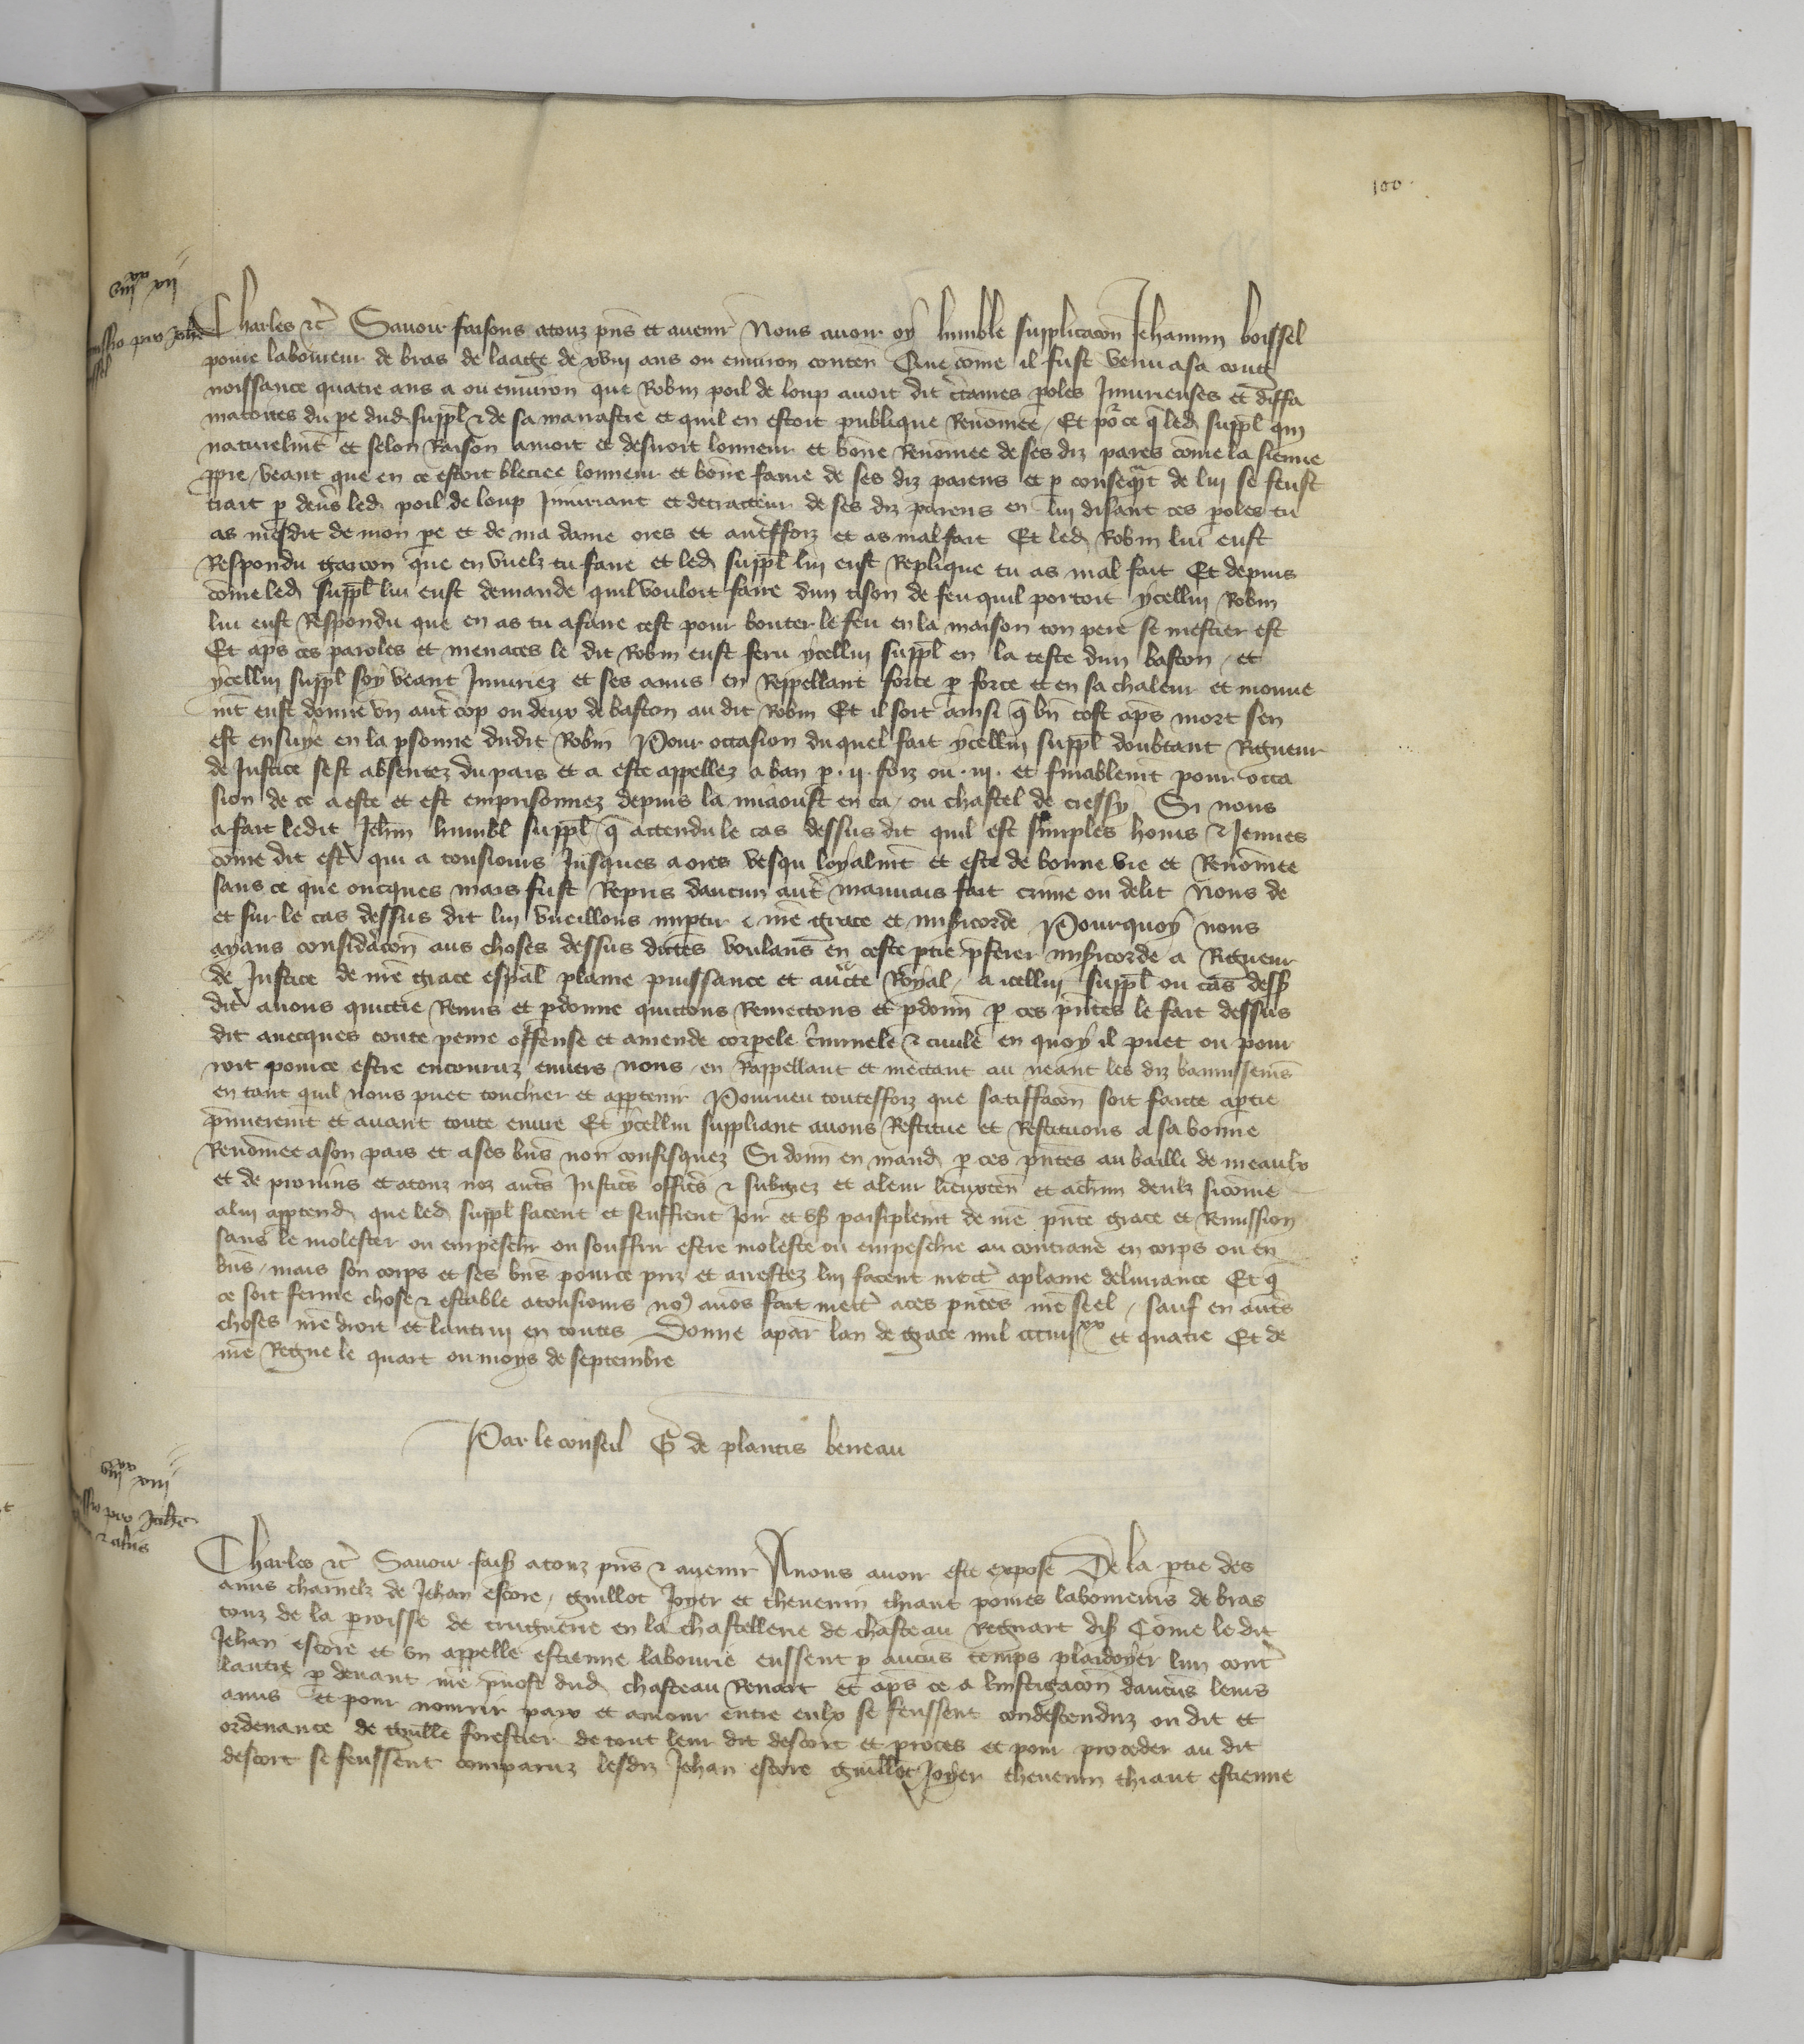 100
viiixx xvii
Charles etc Savoir faisons a touz pns et avenir Nous avoir oy lumble supplicacon Jehannin boissel
povre laboureur de bras de laage de xviii ans ou environ conten Que come il fust venu a sa cong
noissance quatre ans a ou environ que Robin poil de loup avoit dit ctaines poles Injurieuses et diffa
matoires du pe dud suppl et de sa marrastre et quil en estoit publique Renomee / Et por ce q led suppl qui
naturelmt et selon Raison amoit et desiroit lonneur et bone Renomee de ses diz parens come la sienne
ppre / veant que en ce estoit bleciee lonneur et bonne fame de ses diz parens et p consequt de lui se feust
trait p devs led poil de loup Injuriant et detracteur de ses diz parens en lui disant ces poles tu
as mesdit de mon pe et de ma dame ores et autresfoiz et as mal fait Et led Robin lui eust
Respondu garcon que en vuelz tu faire et led suppl lui eust Replique tu as mal fait Et depuis
come led suppl lui eust demande quil vouloit faire dun tison de feu quil portoit ycellui Robin
lui eust Respondu que en as tu a faire cest pour bouter le feu en la maison ton pere se mestier est
Et aps ces paroles et menaces le dit Robin eust feru ycellui suppl en la teste dun baston / et
ycellui suppl soy veant Injuriez et ses amis en Reppellant force p force et en sa chaleur et mouve
mt eust donne un aut cop ou deux de baston au dit Robin Et il soit ainsi q bn tost aps mort sen
est ensuye en la psonne dudit Robin Pour occasion du quel fait ycellui suppl doubtant Rigueur
de Justice sest absentez du pais et a este appellez a ban p .ii. foiz ou .iii. et finablemt pour occa
sion de ce a este et est emprisonnez depuis la miaoust en ca / ou chastel de cressy Si nous
a fait ledit Jehin humbl suppl q attendu le cas dessus dit quil est simples homs et Jeunes
come dit est qui a tousiours Jusques a ores vesqu loyalmt et este de bonne vie et Renomee
sans ce que oncques mais fust Repris daucun aut mauvais fait crime ou delit Nous de
et sur le cas dessus dit lui vueillons imptir nre grace et misicorde Pourquoy nous
ayans considacon aus choses dessus dictes voulans en ceste ptie pferer misicorde a Rigueur
de Justice de nre grace espal plaine puissance et aucte Royal / a icellui suppl ou cas dess
dit avons quictie Remis et pdonne quictons Remectons et pdonn p ces pntes le fait dessus
dit avecques toute peine offense et amende corpele criminele et civile en quoy il puet ou pour
roit pource estre encouruz envers nous en Rappellant et mectant au neant les diz bannissems
en tant quil nous puet touchier et apptenir Pourveu toutesfoiz que satiffacon soit faicte a ptie
pmieremt et avant toute euvre Et ycellui suppliant avons Restitue et Restituons a sa bonne
Renomee a son pais et a ses bns non confisquez Si donn en mand p ces pntes au bailli de meaulx
et de provins et a touz noz auts Justics offics et subgez et a leur lieuxten et a chun deulz sicome
a lui apptend que led suppl facent et seuffrent Joir et us paisiplemt de nre pnte grace et Remission
sans le molester ou empeschr ou souffrir estre moleste ou empeschie au contraire en corps ou en
bns / mais son corps et ses bns pource priz et arrestez lui facent mectr a plaine delivrance Et q
ce soit ferme chose et estable a tousiours nos avons fait mettr a ces pntes nre seel / sauf en auts
choses nre droit et lautrui en toutes Donne a par lan de grace mil ccciiiixx et quatre Et de
nre Regne le quart ou moys de septembre
Par le conseil G de plantis beneau
viiixx xviii
et alus
Charles etc Savoir fais a touz pns et avenir A nous avoir este expose De la ptie des
amis charnelz de Jehan estore / guillot Joyer et thevenin thiaut povres laboureurs de bras
touz de la proisse de truguerre en la chastellerie de chasteau Regnart dis Come le dit
Jehan estore et un appelle estienne labourie eussent p aucuns temps plaidoyer lun cont
lautre p devant nre pvost dud chasteau Renart Et aps ce a linstigacon daucuns leurs
amis et pour nourrir paix et amour entre eulx se feussent condescenduz ou dit et
ordenance de guille forestier de tout leur dit descort et proces et pour proceder au dit
descort se feussent comparuz lesdiz Jehan estore guillot Joyer thevenin thiaut estienne